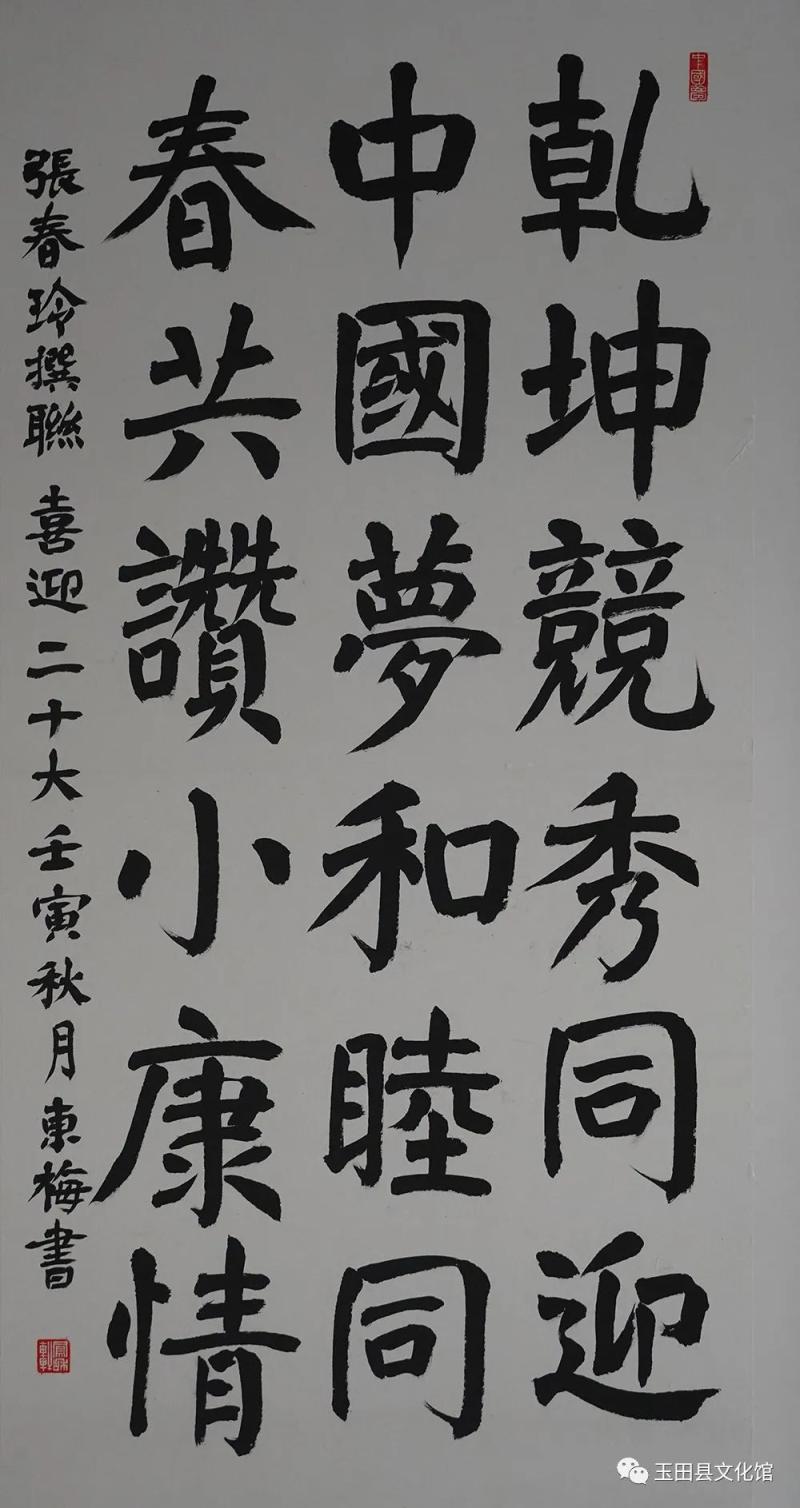 乾坤競秀同迎
中國夢和睦同
春共讚小康情
張春玲撰聯 喜迎二十大 壬寅秋月東梅書
玉田县文化馆